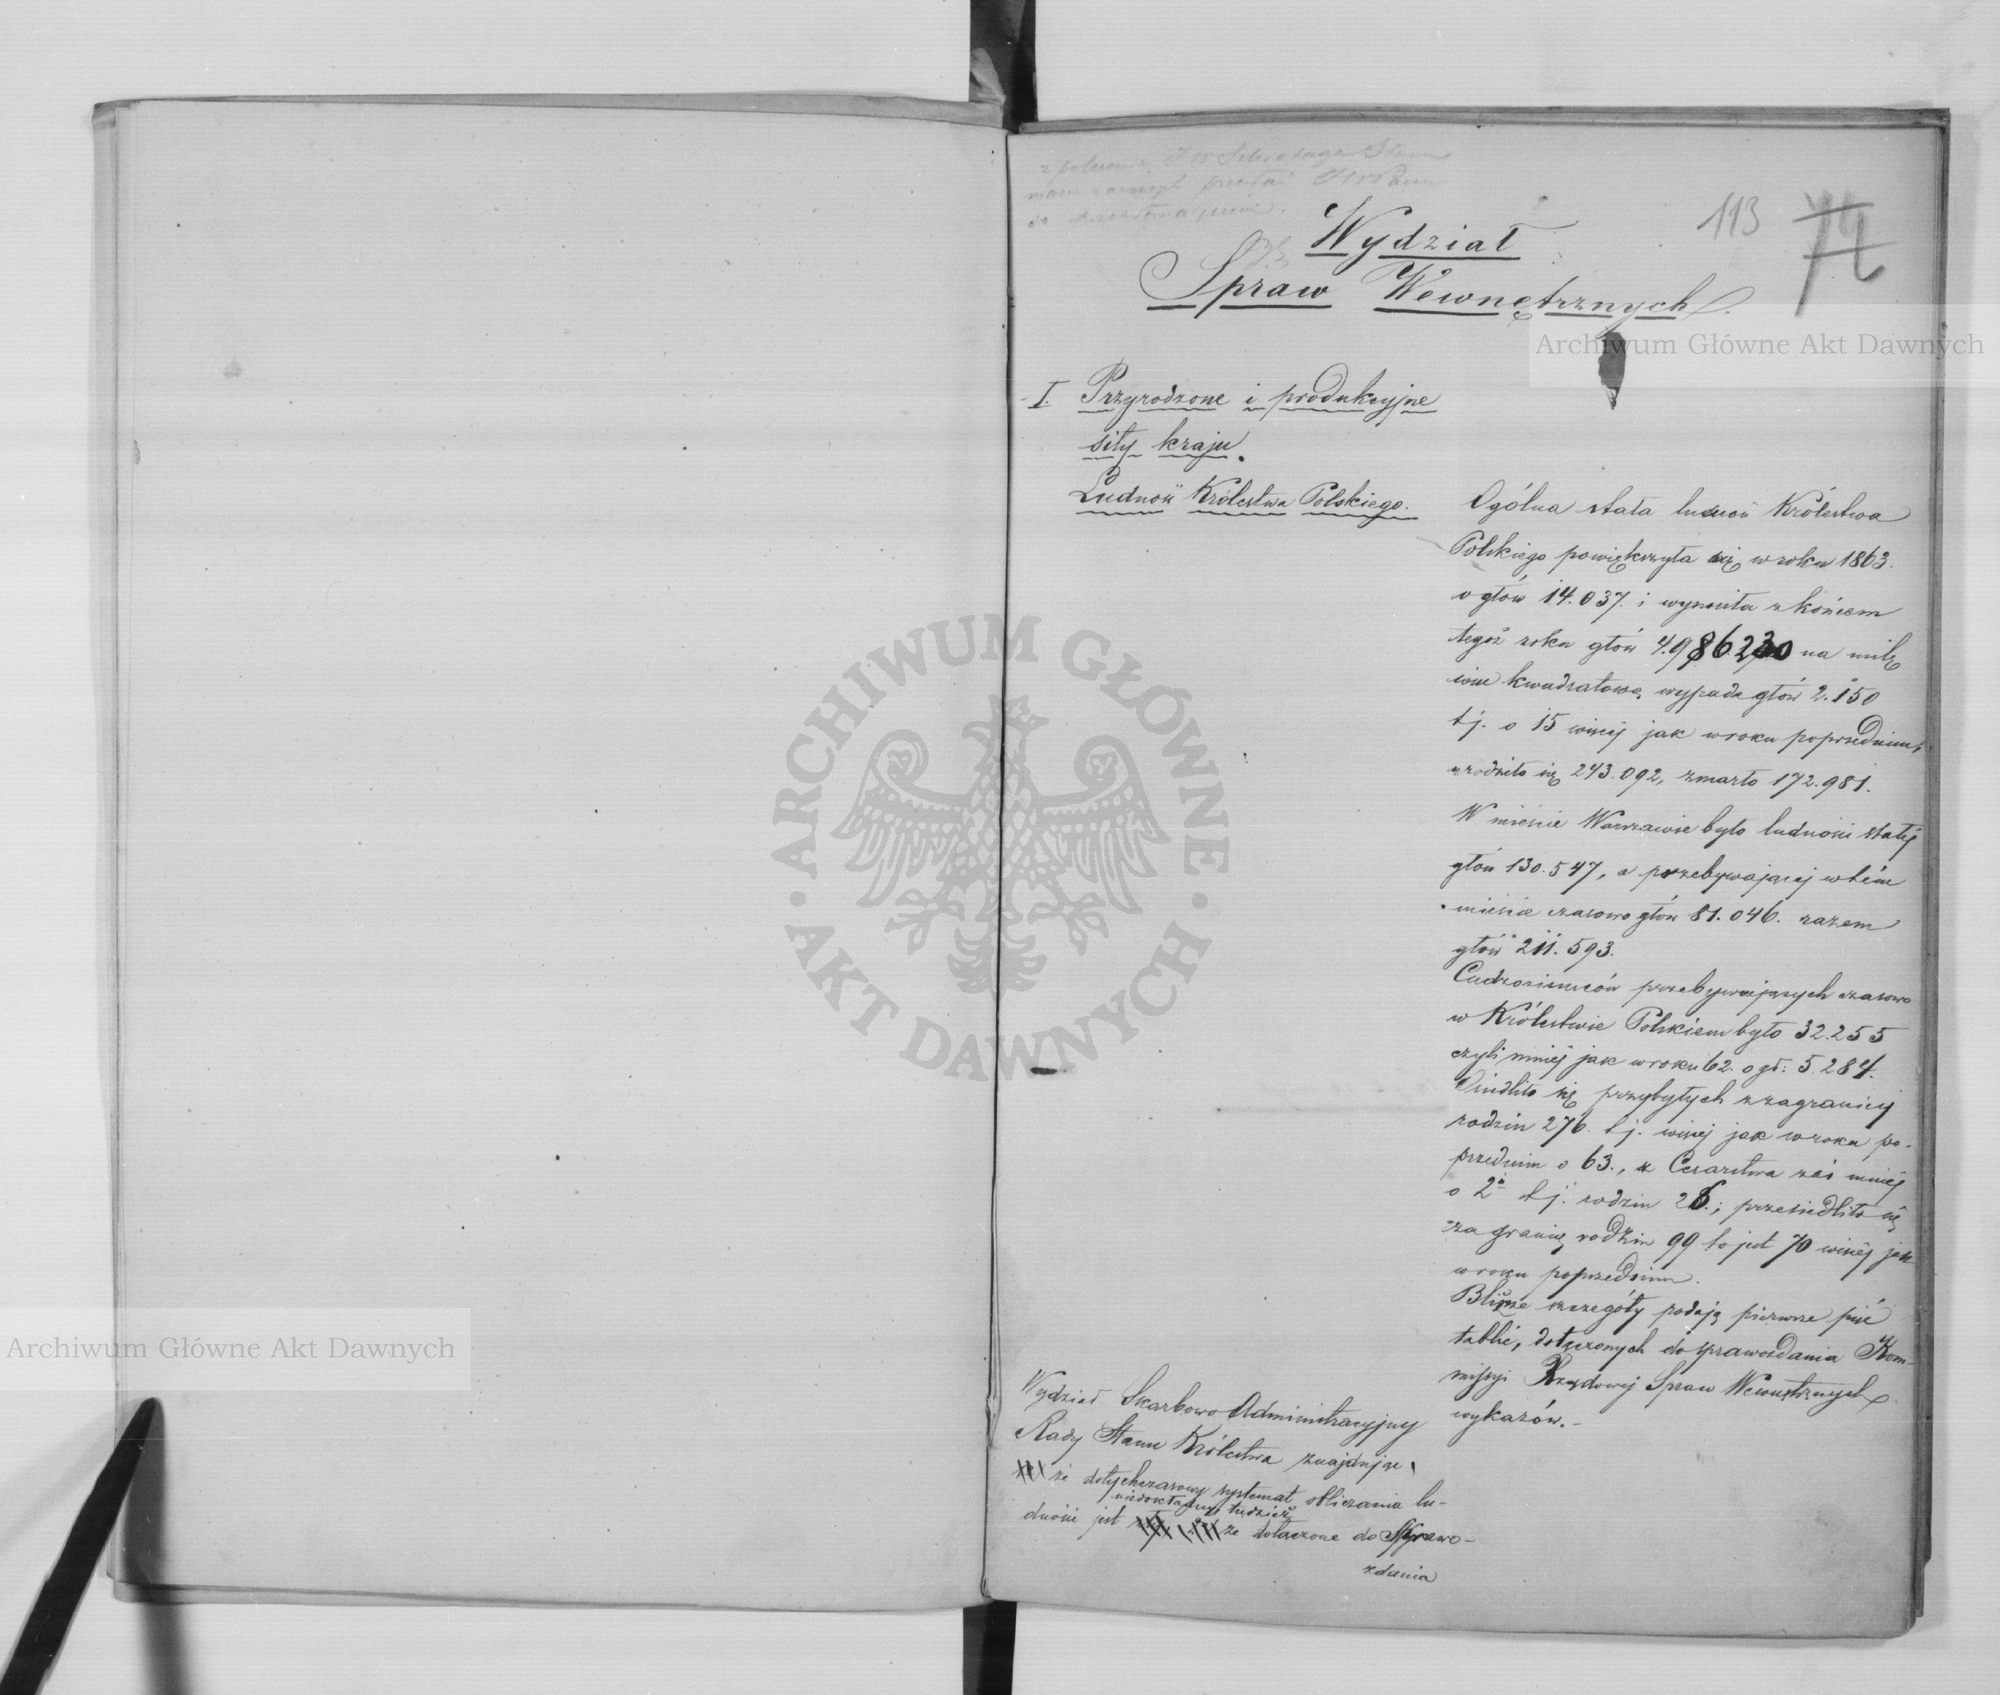 z polecenia
113
Wydział
Spraw Wewnętrznych.
I. Przyrodzone i produkcyjne
siły kraju.
Ludność Królestwa Polskiego.
Ogólna stała ludność Królestwa
Polskiego powiększyła się w roku 1863.
o głów 14.037. i wynosiła z końcem
tegoż roku głów 4.986.230 na milę
zaś kwadratową wypada głów 2.150
t.j. o 15 więcej jak w roku poprzednim;
urodziło się 243.092, zmarło 172.981.
W mieście Warszawie było ludności stałej
głów 130.547, a przebywającej w tém
mieście czasowo głów 81.046. razem
głów 211.593.
Cudzoziemców przebywających czasowo
w Królestwie Polskiem było 32.255
czyli mniej jak w roku 62. o gł: 5.284.
Osiedliło się przybyłych z zagranicy
rodzin 276. t.j. więcej jak w roku po-
przednim o 63., z Cesarstwa zaś mniej
o 2 t.j. rodzin 28.; przesiedliło się
za granicę rodzin 99 to jest 70 więcej jak
w roku poprzednim.
Bliższe szczegóły podają pierwsze pięć
tablic, dołączonych do sprawozdania Kom-
missyi Rządowej Spraw Wewnętrznych
wykazów.-
Wydział Skarbowo Administracyjny
Rady Stanu Królestwa znajdując
że dotychczasowy systemat obliczania lu-
niedokładny, tudzież
dności jest że dołączone do Sprawo-
zdania
Archiwum Główne Akt Dawnych
Archiwum Główne Akt Dawnych
ARCHIWUM GŁÓWNE
AKT DAWNYCH